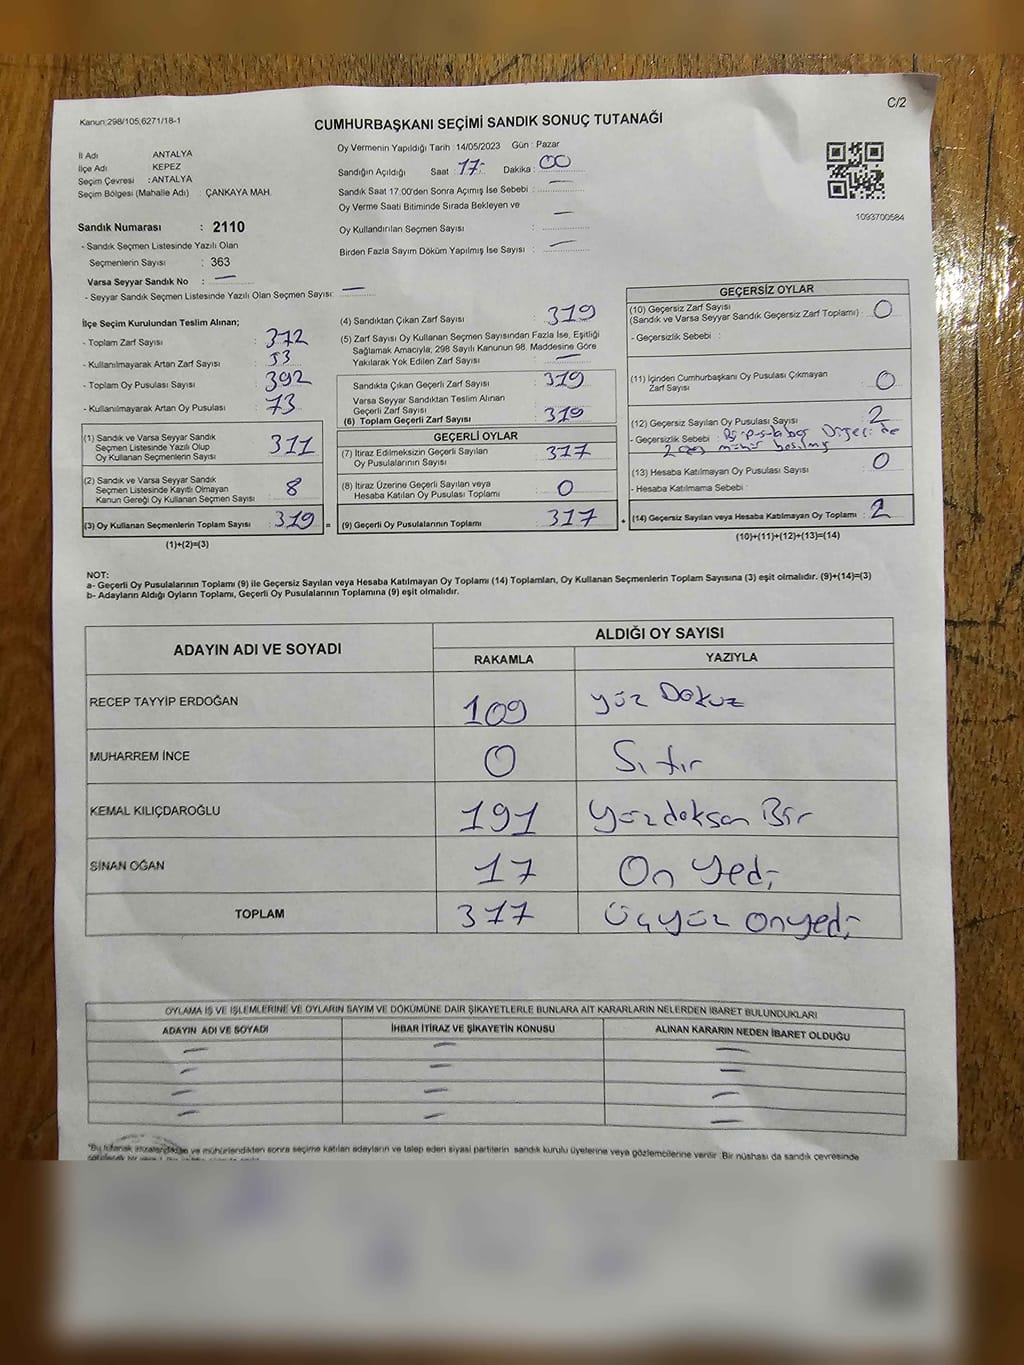 C/2
Kanun:298/105,6271/18-1
CUMHURBAŞKANI SEÇİMİ SANDIK SONUÇ TUTANAĞI
İl Adı ANTALYA
İlçe Adı KEPEZ
Seçim Çevresi : ANTALYA
Seçim Bölgesi (Mahalle Adı) : ÇANKAYA MAH.
Sandık Numarası : 2110
- Sandık Seçmen Listesinde Yazılı Olan
Seçmenlerin Sayısı : 363
Varsa Seyyar Sandık No : —
- Seyyar Sandık Seçmen Listesinde Yazılı Olan Seçmen Sayısı: —
Oy Vermenin Yapıldığı Tarih : 14/05/2023 Gün : Pazar
Sandığın Açıldığı Saat 17: Dakika : 00
Sandık Saat 17:00'den Sonra Açımış İse Sebebi : —
Oy Verme Saati Bitiminde Sırada Bekleyen ve
Oy Kullandırılan Seçmen Sayısı : —
Birden Fazla Sayım Döküm Yapılmış İse Sayısı : —
1093700584
İlçe Seçim Kurulundan Teslim Alınan;
- Toplam Zarf Sayısı : 372
- Kullanılmayarak Artan Zarf Sayısı : 53
- Toplam Oy Pusulası Sayısı : 392
- Kullanılmayarak Artan Oy Pusulası : 73
(1) Sandık ve Varsa Seyyar Sandık
Seçmen Listesinde Yazılı Olup
Oy Kullanan Seçmenlerin Sayısı : 311
(2) Sandık ve Varsa Seyyar Sandık
Seçmen Listesinde Kayıtlı Olmayan
Kanun Gereği Oy Kullanan Seçmen Sayısı : 8
(3) Oy Kullanan Seçmenlerin Toplam Sayısı : 319 =
(1)+(2)=(3)
(4) Sandıktan Çıkan Zarf Sayısı : 319
(5) Zarf Sayısı Oy Kullanan Seçmen Sayısından Fazla İse, Eşitliği
Sağlamak Amacıyla, 298 Sayılı Kanunun 98. Maddesine Göre
Yakılarak Yok Edilen Zarf Sayısı : —
Sandıkta Çıkan Geçerli Zarf Sayısı : 319
Varsa Seyyar Sandıktan Teslim Alınan
Geçerli Zarf Sayısı :
(6) Toplam Geçerli Zarf Sayısı : 319
GEÇERLİ OYLAR
(7) İtiraz Edilmeksizin Geçerli Sayılan
Oy Pusulalarının Sayısı : 317
(8) İtiraz Üzerine Geçerli Sayılan veya
Hesaba Katılan Oy Pusulası Toplamı : 0
(9) Geçerli Oy Pusulalarının Toplamı : 317 +
GEÇERSİZ OYLAR
(10) Geçersiz Zarf Sayısı
(Sandık ve Varsa Seyyar Sandık Geçersiz Zarf Toplamı) : 0
- Geçersizlik Sebebi :
(11) İçinden Cumhurbaşkanı Oy Pusulası Çıkmayan
Zarf Sayısı : 0
(12) Geçersiz Sayılan Oy Pusulası Sayısı : 2
- Geçersizlik Sebebi : Bir pusula boş Diğeri de
mühür basılmış
(13) Hesaba Katılmayan Oy Pusulası Sayısı : 0
- Hesaba Katılmama Sebebi :
(14) Geçersiz Sayılan veya Hesaba Katılmayan Oy Toplamı : 2
(10)+(11)+(12)+(13)=(14)
NOT:
a- Geçerli Oy Pusulalarının Toplamı (9) ile Geçersiz Sayılan veya Hesaba Katılmayan Oy Toplamı (14) Toplamları, Oy Kullanan Seçmenlerin Toplam Sayısına (3) eşit olmalıdır. (9)+(14)=(3)
b- Adayların Aldığı Oyların Toplamı, Geçerli Oy Pusulalarının Toplamına (9) eşit olmalıdır.
ADAYIN ADI VE SOYADI ALDIĞI OY SAYISI
RAKAMLA YAZIYLA
RECEP TAYYİP ERDOĞAN 109 yüz Dokuz
MUHARREM İNCE 0 Sıfır
KEMAL KILIÇDAROĞLU 191 Yüzdoksan Bir
SİNAN OĞAN 17 On Yedi
TOPLAM 317 Üçyüz onyedi
OYLAMA İŞ VE İŞLEMLERİNE VE OYLARIN SAYIM VE DÖKÜMÜNE DAİR ŞİKAYETLERLE BUNLARA AİT KARARLARIN NELERDEN İBARET BULUNDUKLARI
ADAYIN ADI VE SOYADI İHBAR İTİRAZ VE ŞİKAYETİN KONUSU ALINAN KARARIN NEDEN İBARET OLDUĞU
— — —
— — —
— — —
— — —
"Bu tutanak imzalandıktan ve mühürlendikten sonra seçime katılan adayların ve talep eden siyasi partilerin sandık kurulu üyelerine veya gözlemcilerine verilir. Bir nüshası da sandık çevresinde